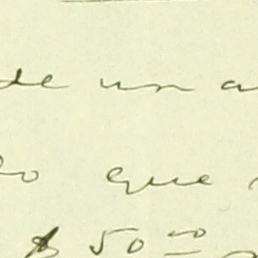 de un a
do que
$ 50.00